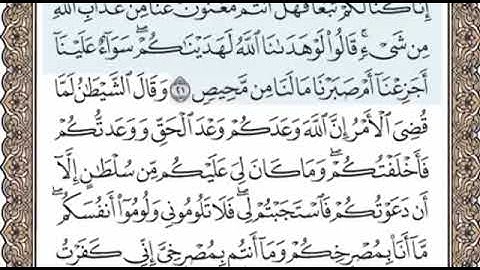 إِنَّا كُنَّا لَكُمْ تَبَعًا فَهَلْ أَنتُم مُّغْنُونَ عَنَّا مِنْ عَذَابِ ٱللَّهِ
مِن شَىْءٍ ۚ قَالُوا۟ لَوْ هَدَىٰنَا ٱللَّهُ لَهَدَيْنَٰكُمْ ۖ سَوَآءٌ عَلَيْنَآ
أَجَزِعْنَآ أَمْ صَبَرْنَا مَا لَنَا مِن مَّحِيصٍ ٢١ وَقَالَ ٱلشَّيْطَٰنُ لَمَّا
قُضِىَ ٱلْأَمْرُ إِنَّ ٱللَّهَ وَعَدَكُمْ وَعْدَ ٱلْحَقِّ وَوَعَدتُّكُمْ
فَأَخْلَفْتُكُمْ ۖ وَمَا كَانَ لِىَ عَلَيْكُم مِّن سُلْطَٰنٍ إِلَّآ
أَن دَعَوْتُكُمْ فَٱسْتَجَبْتُمْ لِى ۖ فَلَا تَلُومُونِى وَلُومُوٓا۟ أَنفُسَكُم ۖ
مَّآ أَنَا۠ بِمُصْرِخِكُمْ وَمَآ أَنتُم بِمُصْرِخِىَّ ۖ إِنِّى كَفَرْتُ